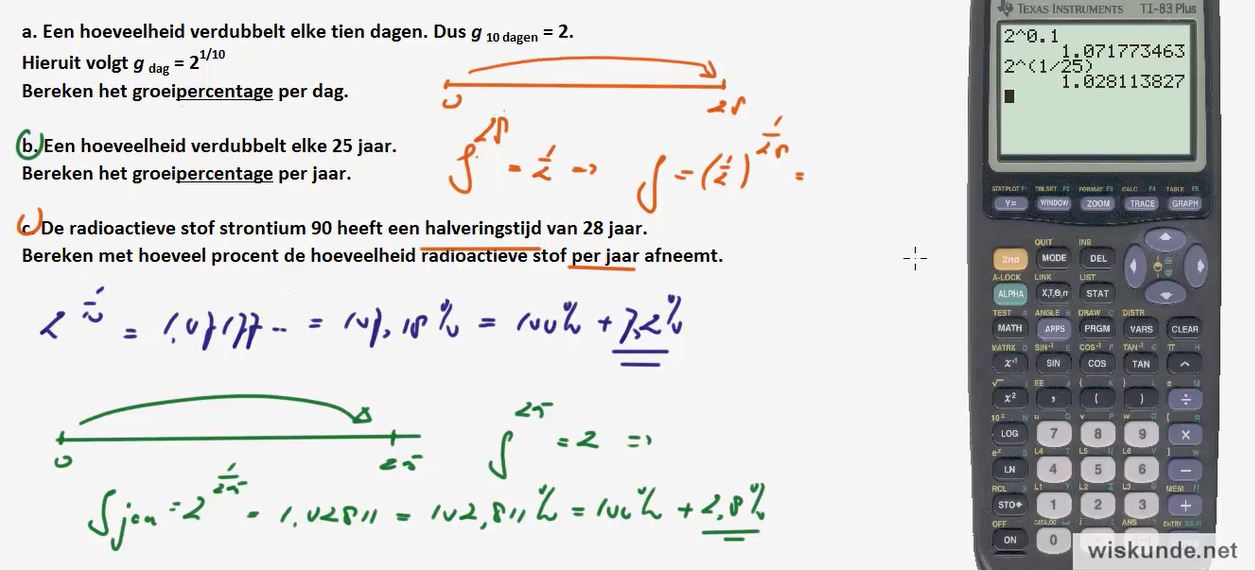 a. Een hoeveelheid verdubbelt elke tien dagen. Dus g 10 dagen = 2.
Hieruit volgt g dag = 2^1/10
Bereken het groeipercentage per dag.
b. Een hoeveelheid verdubbelt elke 25 jaar.
Bereken het groeipercentage per jaar.
c. De radioactieve stof strontium 90 heeft een halveringstijd van 28 jaar.
Bereken met hoeveel procent de hoeveelheid radioactieve stof per jaar afneemt.
0 28
g^28 = 1/2 => g = (1/2)^1/28 =
2^1/10 = 1,07177.. = 107,18% = 100% + 7,2%
0 25
g^25 = 2 =>
g jaar = 2^1/25 = 1,02811 = 102,811% = 100% + 2,8%
TEXAS INSTRUMENTS TI-83 Plus
2^0.1
1.071773463
2^(1/25)
1.028113827
STAT PLOT F1 TBLSET F2 FORMAT F3 CALC F4 TABLE F5
Y= WINDOW ZOOM TRACE GRAPH
QUIT INS
2nd MODE DEL
A-LOCK LINK LIST
ALPHA X,T,Θ,n STAT
TEST A ANGLE B DRAW C DISTR
MATH APPS PRGM VARS CLEAR
MATRX D SIN⁻¹ E COS⁻¹ F TAN⁻¹ G π H
x⁻¹ SIN COS TAN ^
√ I EE J { K } L e M
x² , ( ) ÷
10ˣ N u O v P w Q [ R
LOG 7 8 9 ×
eˣ S L4 T L5 U L6 V ] W
LN 4 5 6 −
RCL X L1 Y L2 Z L3 θ MEM "
STO▸ 1 2 3 +
OFF CATALOG i : ANS ? ENTRY SOLVE
ON 0
wiskunde.net